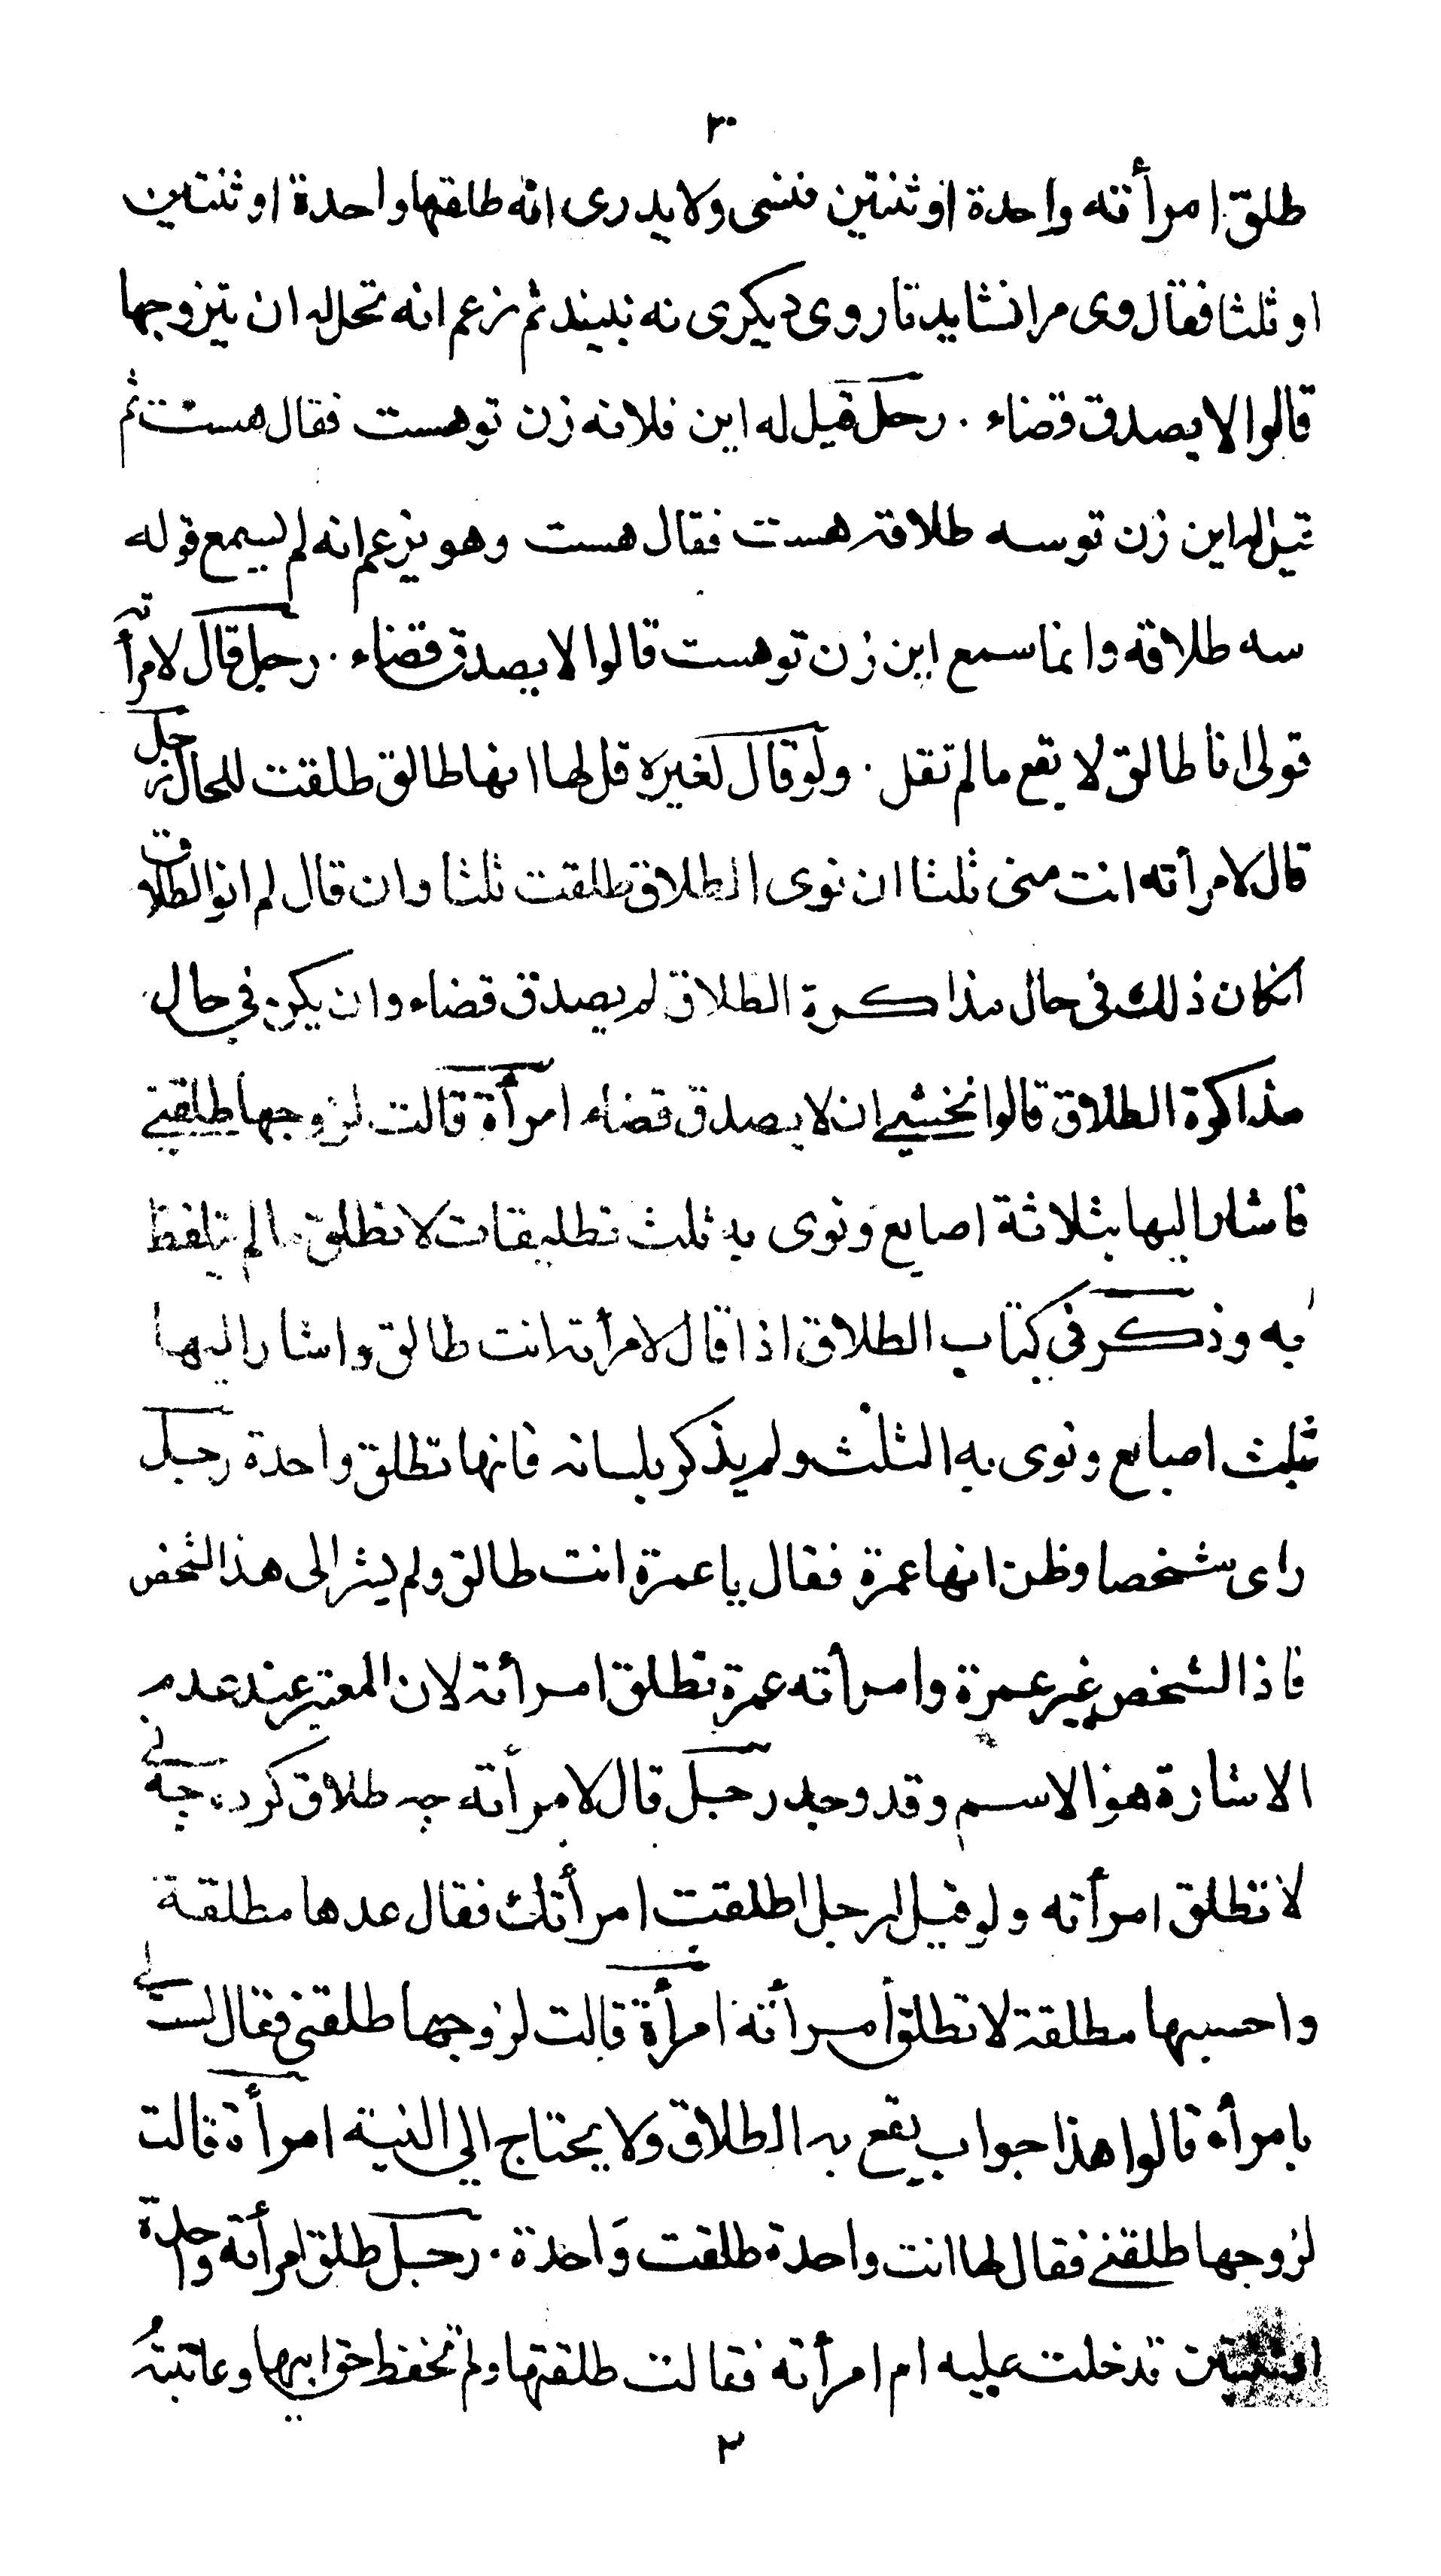 ٣٠
طلق امرأته واحدة او ثنتين فنسى ولا يدرى انه طلقها واحدة او ثنتين
او ثلثا فقال وى مرا نشايد تا روى ديكرى نه نبيند ثم زعم انه تحل له ان يتزوجها
قالوا لا يصدق قضاء . رجل قيل له اين فلانه زن تو هست فقال هست ثم
قيل له اين زن تو سه طلاقه هست فقال هست وهو يزعم انه لم يسمع قوله
سه طلاقه وانما سمع اين زن تو هست قالوا لا يصدق قضاء . رجل قال لامرأته
قولى انا طالق لا يقع ما لم تقل . ولو قال لغيره قل لها انها طالق طلقت للحال رجل
قال لامرأته انت منى ثلثا ان نوى الطلاق طلقت ثلثا وان قال لم انو الطلاق
انكان ذلك فى حال مذاكرة الطلاق لم يصدق قضاء وان يكن فى حال
مذاكرة الطلاق قالوا نخشى ان لا يصدق قضاء امرأة قالت لزوجها طلقنى
فاشار اليها بثلاثة اصابع ونوى به ثلث تطليقات لا تطلق ما لم يتلفظ
به وذكر فى كتاب الطلاق اذا قال لامرأته انت طالق واشار اليها
بثلث اصابع ونوى به الثلث ولم يذكر بلسانه فانها تطلق واحدة رجل
راى شخصا وظن انها عمرة فقال يا عمرة انت طالق ولم يشر الى هذا الشخص
فاذا الشخص غير عمرة وامرأته عمرة تطلق امرأته لان المعتبر عند عدم
الاشارة هو الاسم وقد وجد رجل قال لامرأته چه طلاق كرده چه نى
لا تطلق امرأته ولو قيل لرجل اطلقت امرأتك فقال عدها مطلقة
واحسبها مطلقة لا تطلق امرأته امرأة قالت لزوجها طلقنى فقال لست لى
بامرأة قالوا هذا جواب يقع به الطلاق ولا يحتاج الى النية امرأة قالت
لزوجها طلقنى فقال لها انت واحدة طلقت واحدة . رجل طلق امرأته واحدة
او ثنتين فدخلت عليه ام امرأته فقالت طلقتها ولم تحفظ حق ابيها وعاتبته
٣